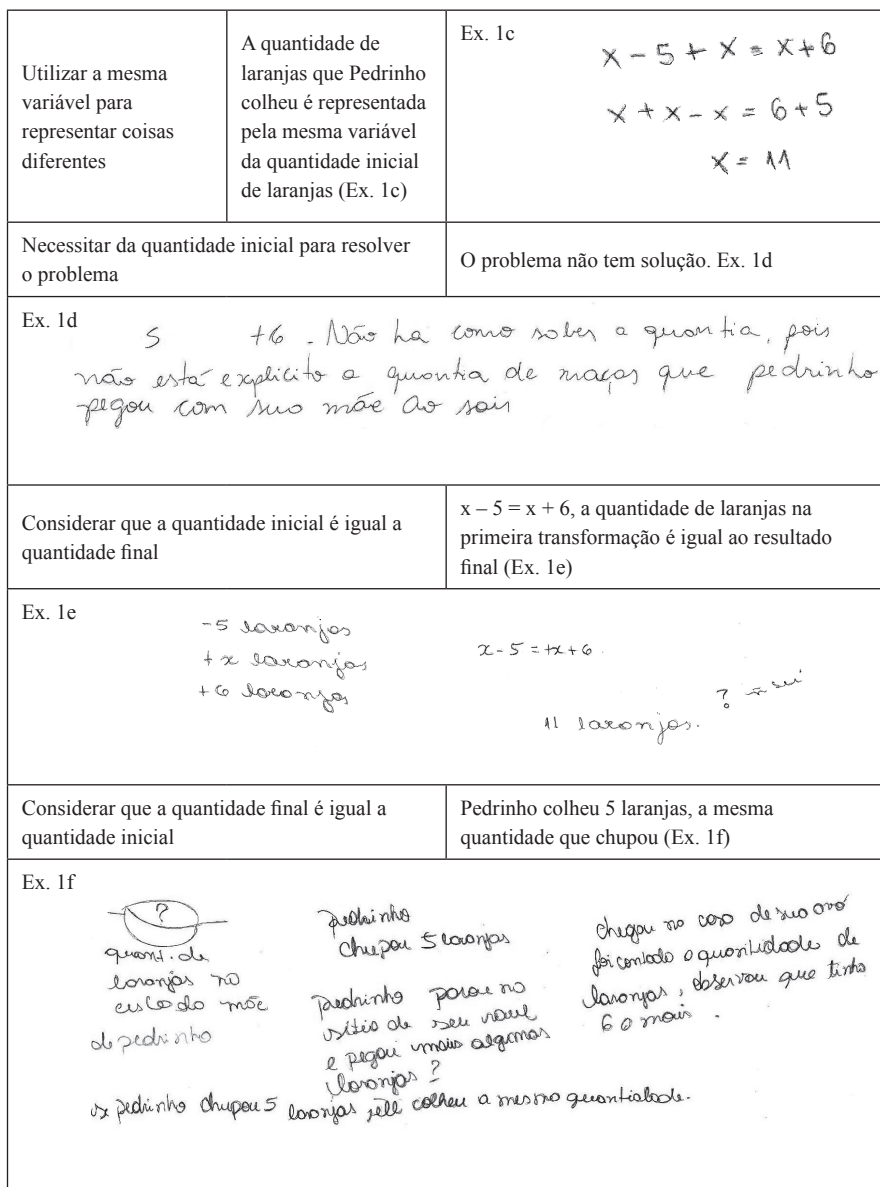 Utilizar a mesma
variável para
representar coisas
diferentes
A quantidade de
laranjas que Pedrinho
colheu é representada
pela mesma variável
da quantidade inicial
de laranjas (Ex. 1c)
Ex. 1c
x - 5 + x = x + 6
x + x - x = 6 + 5
x = 11
Necessitar da quantidade inicial para resolver
o problema
O problema não tem solução. Ex. 1d
Ex. 1d
5 +6 . Não ha como saber a quantia, pois
não está explicito a quantia de maças que pedrinho
pegou com sua mãe ao sair
Considerar que a quantidade inicial é igual a
quantidade final
x – 5 = x + 6, a quantidade de laranjas na
primeira transformação é igual ao resultado
final (Ex. 1e)
Ex. 1e
-5 laranjas
+ x laranjas
+6 laranjas
x - 5 = +x + 6
11 laranjas. ?
Considerar que a quantidade final é igual a
quantidade inicial
Pedrinho colheu 5 laranjas, a mesma
quantidade que chupou (Ex. 1f)
Ex. 1f
?
quant. de
laranjas no
mãe
de pedrinho
pedrinho
chupou 5 laranjas
pedrinho no
sítio de seu
e pegou mais algumas
laranjas ?
chegou na casa de sua
foi contado a quantidade de
laranjas, observou que tinha
6 a mais .
pedrinho chupou 5 laranjas colheu a mesma quantidade.